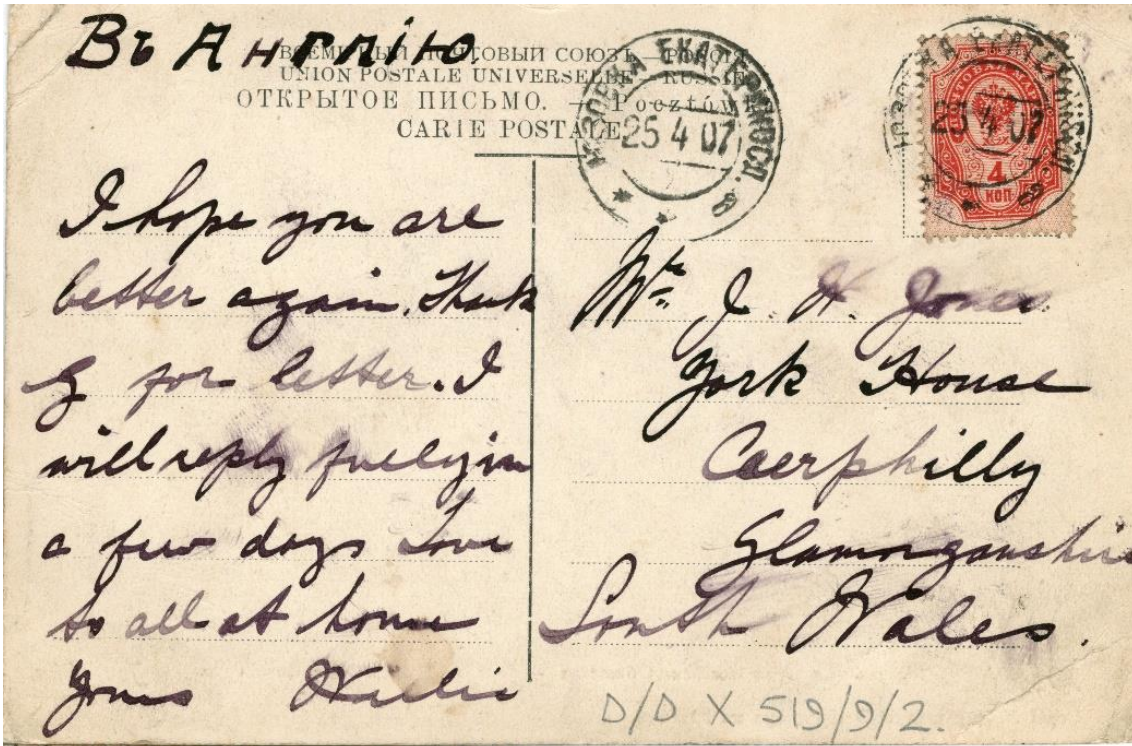 Въ Англію
ВСЕМІРНЫЙ ПОЧТОВЫЙ СОЮЗЪ РОССІЯ
UNION POSTALE UNIVERSELLE RUSSIE
ОТКРЫТОЕ ПИСЬМО. — Pocztówka
CARTE POSTALE
ЮЗОВКА ЕКАТЕРИНОСЛ. 8
25 4 07
ЮЗОВКА ЕКАТЕРИНОСЛ. 8
25 4 07
ПОЧТОВАЯ МАРКА
4
КОП
I hope you are
better again. Thank
for letter. I
will reply fully in
a few days Love
to all at home
Yours Willie
Mr J. H. Jones
York House
Caerphilly
Glamorganshire
South Wales.
D/D X 519/9/2.